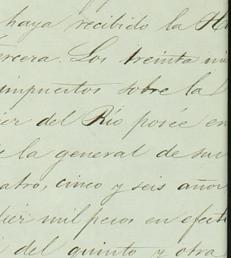 haya recibido la H
ercera. Los treinta mi
impuestos sobre la
ier del Rio posee en
e la general de su
atro, cinco y seis años
dier mil pesos en efecti
del quinto y otra